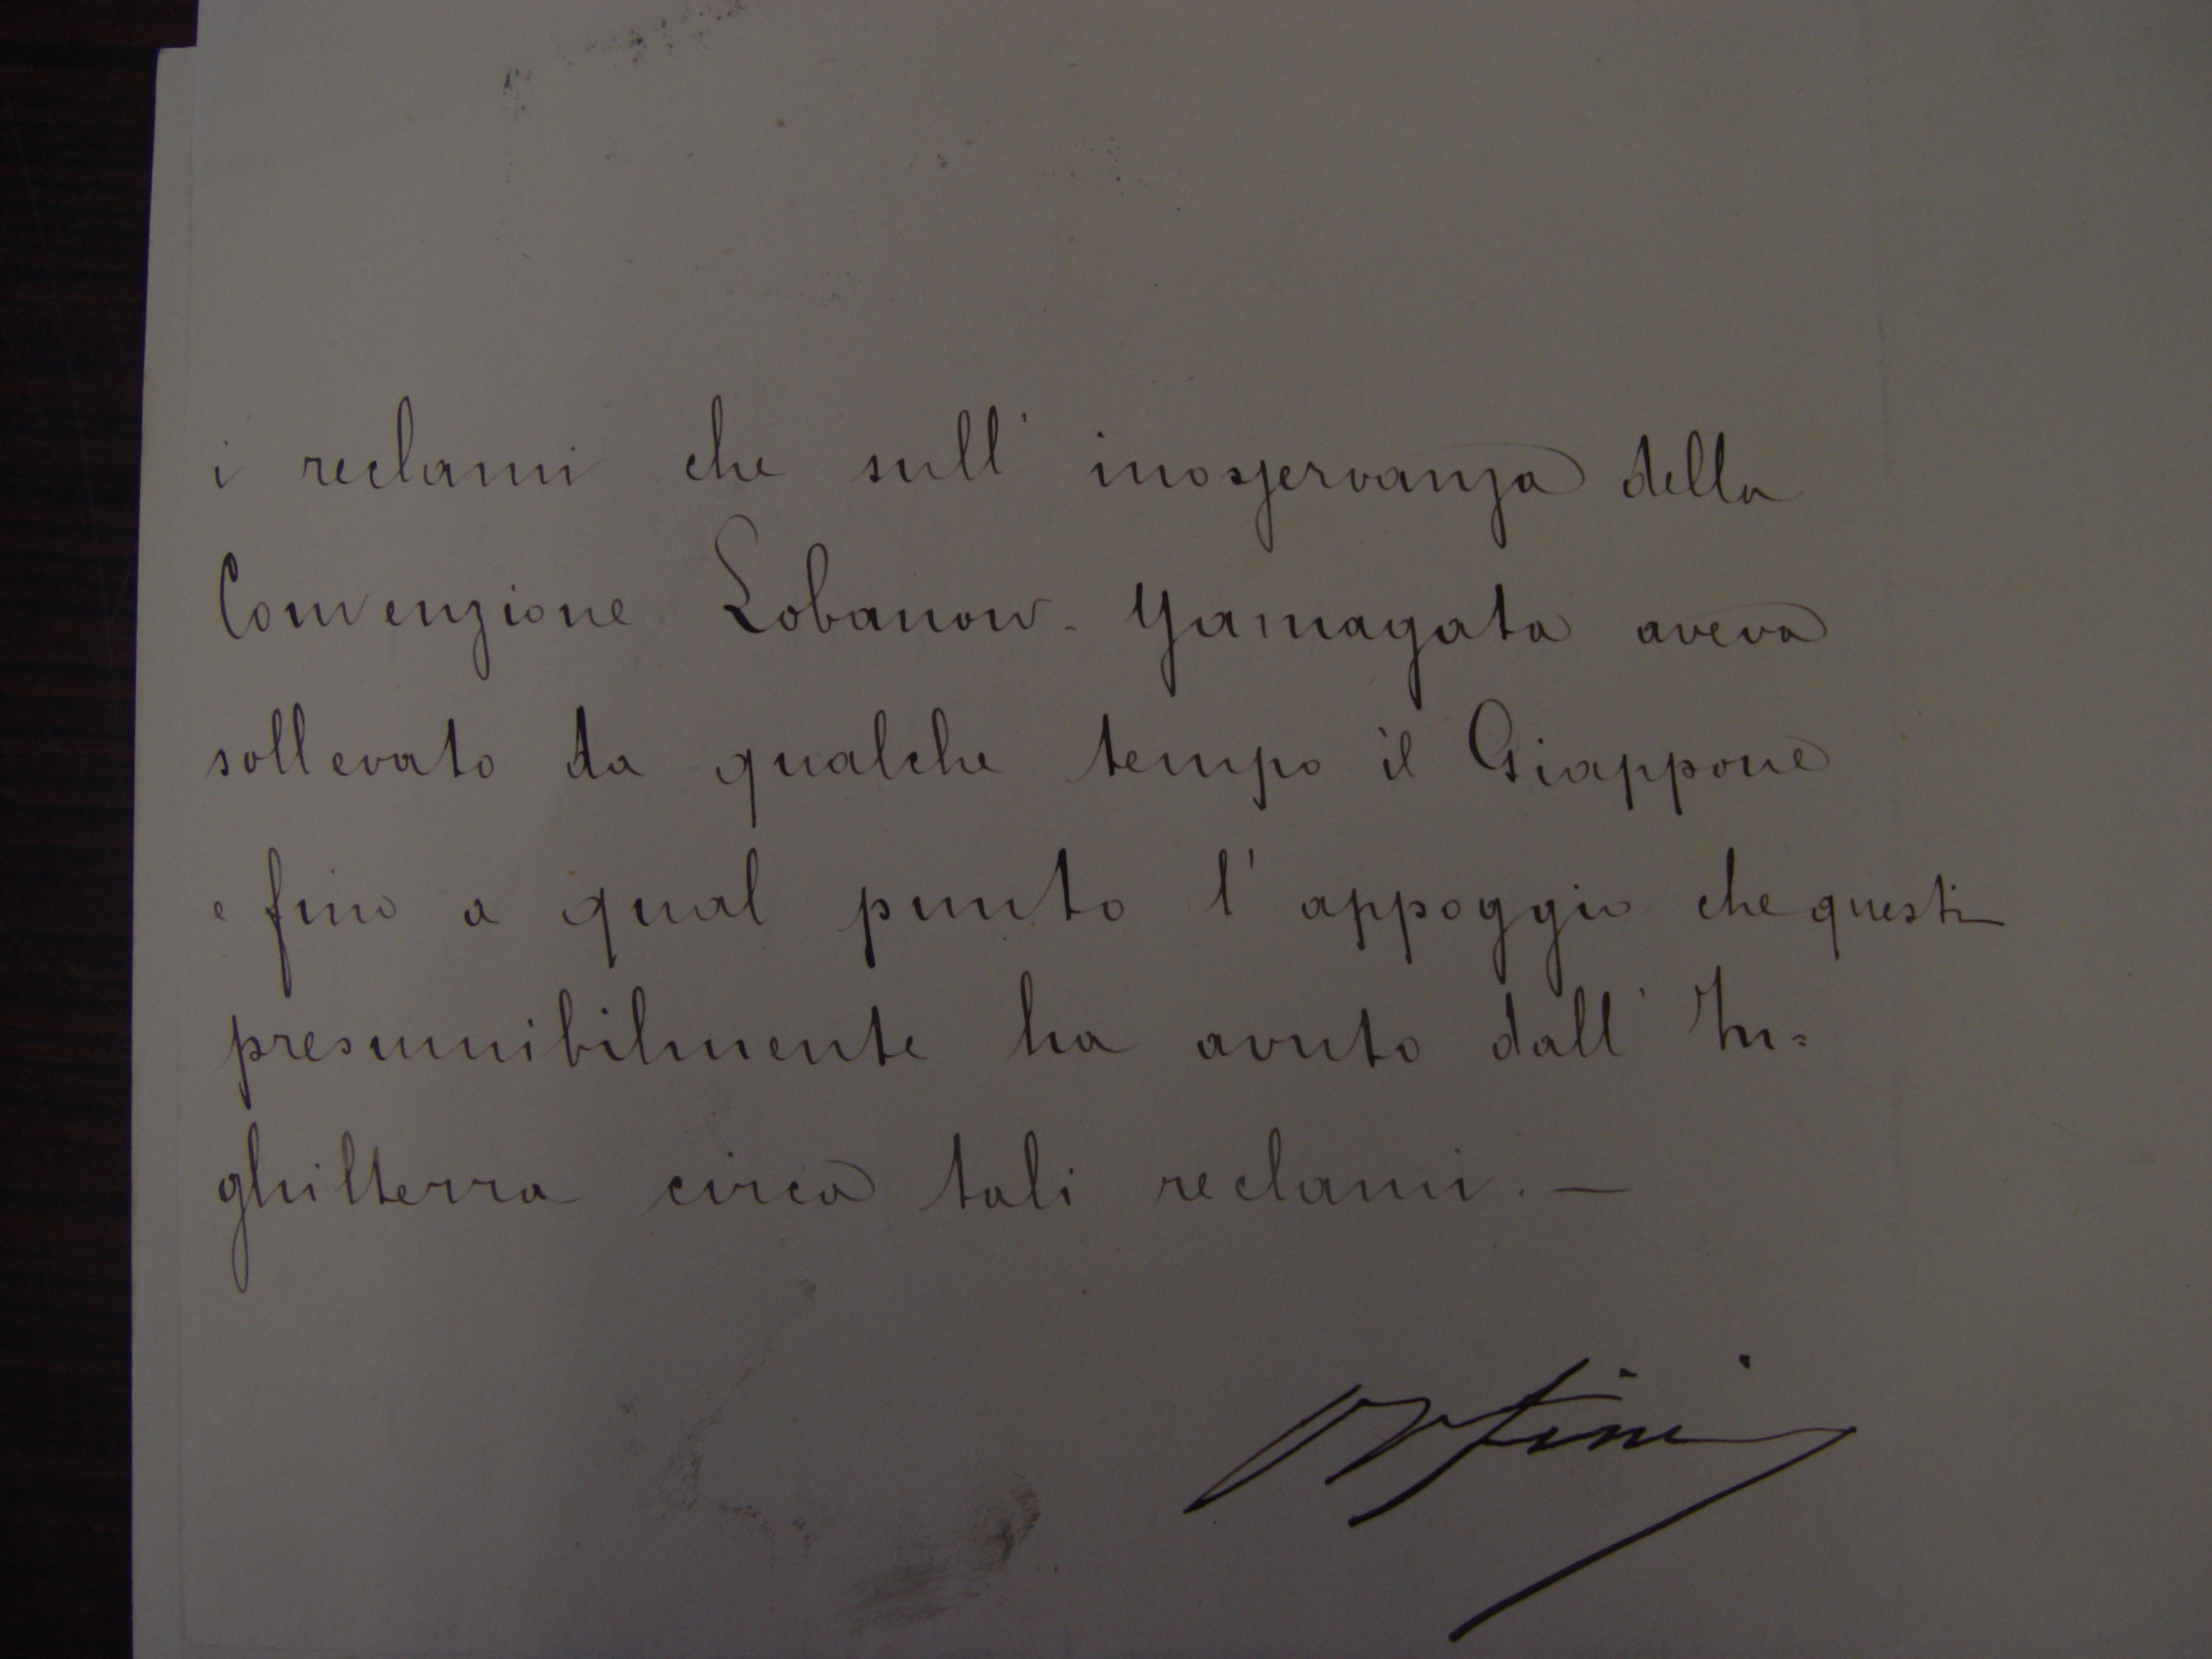 i reclami che sull' inosservanza della
Convenzione Lobanow - Yamagata aveva
sollevato da qualche tempo il Giappone
e fino a qual punto l' appoggio che questi
presumibilmente ha avuto dall' In=
ghilterra circa tali reclami. —